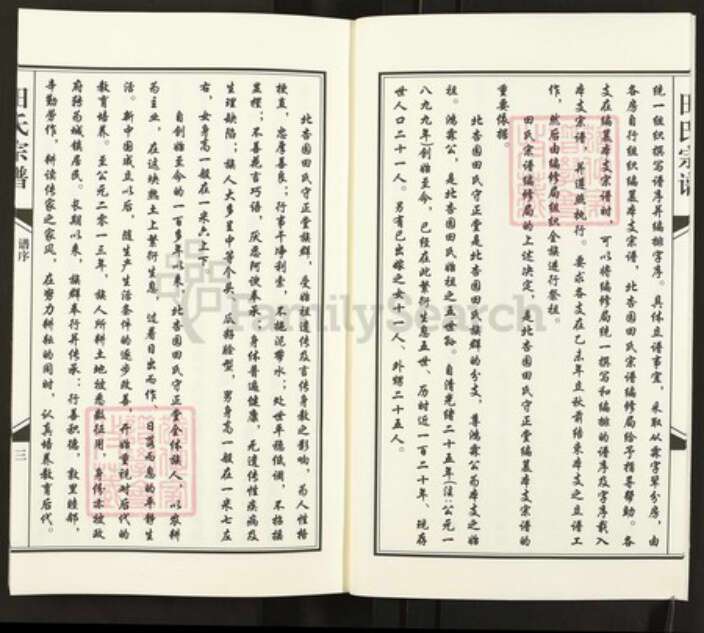 田氏宗谱
统一组织撰写谱序并编排字序。具体立谱事宜，采取从霖字辈分房，由
各房自行组织编纂本支宗谱，北杏园田氏宗谱编修局给予指导帮助。各
支在编纂本支宗谱时，可以将编修局统一撰写和编排的谱序及字序载入
本支宗谱，并遵照执行。要求各支在乙未年立秋前结束本支之立谱工
作，然后由编修局组织全族进行祭祖。
田氏宗谱编修局的上述决定，是北杏园田氏守正堂编纂本支宗谱的
重要依据。
北杏园田氏守正堂是北杏园田氏族群的分支，尊鸿霖公为本支之始
祖。鸿霖公，是北杏园田氏始祖之八世孙。自清光绪二十五年(注:公元一
八九九年)创始至今，已经在此繁衍生息五世、历时近一百二十年、现存
世人口二十一人。另有已出嫁之女十一人、外甥二十五人。
北杏园田氏守正堂族群，受始祖遗传及言传身教之影响，为人性格
梗直，忠厚善良；行事干净利索，不拖泥带水；处世平稳低调，不招摇
显摆；不善花言巧语，厌恶阿谀奉承。身体普遍健康，无遗传性疾病及
生理缺陷；族人大多呈中等个头、瓜籽脸型，男身高一般在一米七左
右，女身高一般在一米六上下。
自创始至今的一百多年以来，北杏园田氏守正堂全体族人，以农耕
为主业，在这块热土上繁衍生息，过着日出而作、日落而息的平静生
活。新中国成立以后，随生产生活条件的逐步改善，开始重视对后代的
教育培养。至公元二零一三年，族人所耕土地被悉数征用，身份亦被政
府转为城镇居民。长期以来，族群奉行并传承：行善积德，敦里睦邻，
辛勤劳作，耕读传家之家风，在努力耕耘的同时，认真培养教育后代。
田氏宗谱
谱序
三
FamilySearch